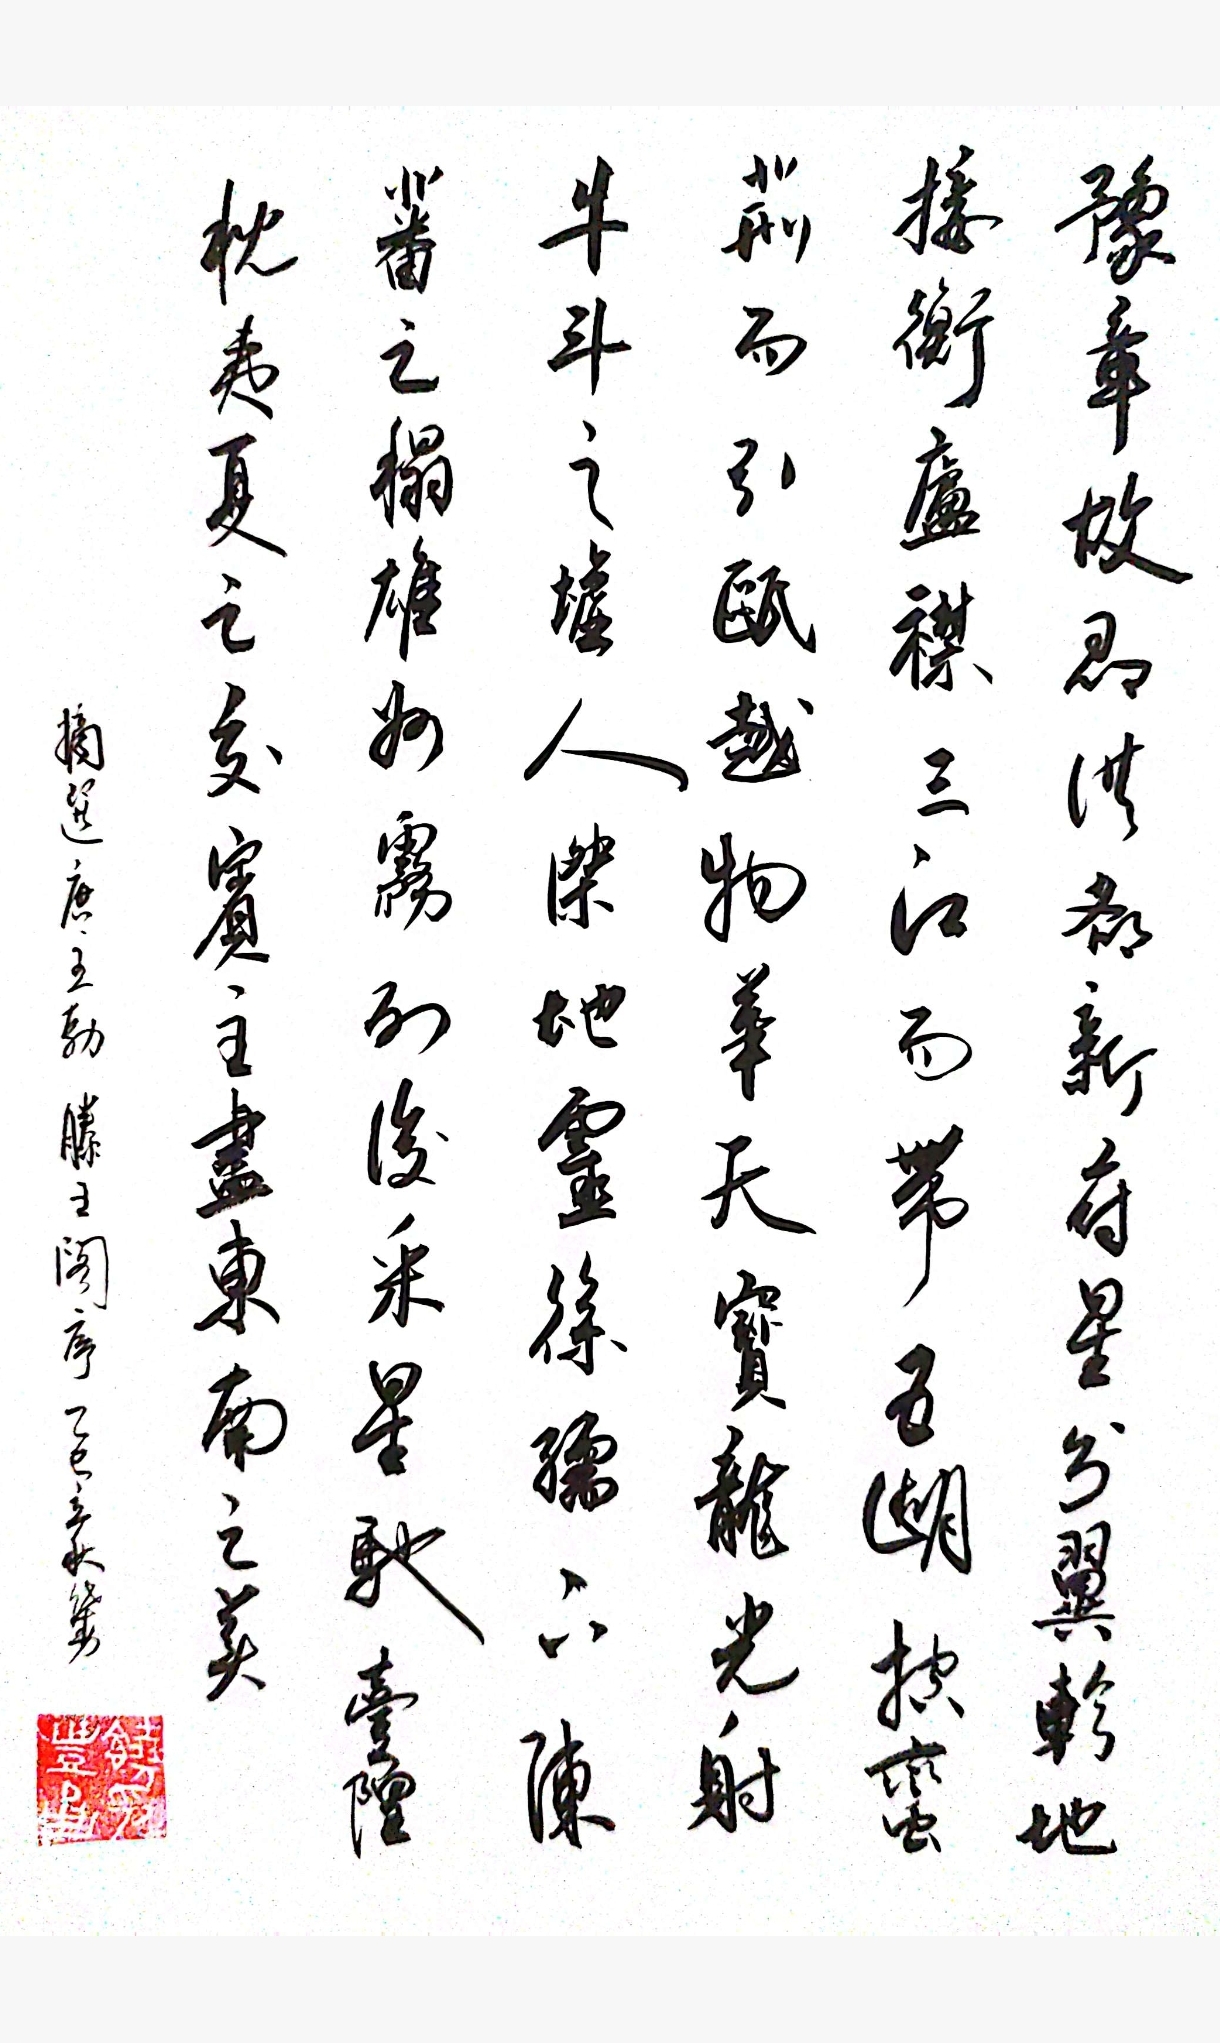 豫章故郡洪都新府星分翼軫地
接衡廬襟三江而帶五湖控蠻
荊而引甌越物華天寶龍光射
牛斗之墟人傑地靈徐孺下陳
蕃之榻雄州霧列俊采星馳臺隍
枕夷夏之交賓主盡東南之美
摘選唐王勃 滕王閣序 乙巳立秋